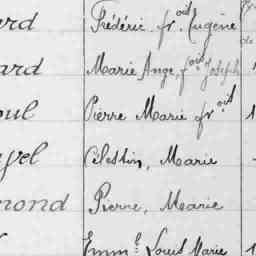 ard Frédéric fr.ois Eugène
ard Marie Ange, f.ois Joseph
oul Pierre Marie fr.ois
yel Célestin, Marie
mond Pierre, Marie
Emm.l Louis Marie